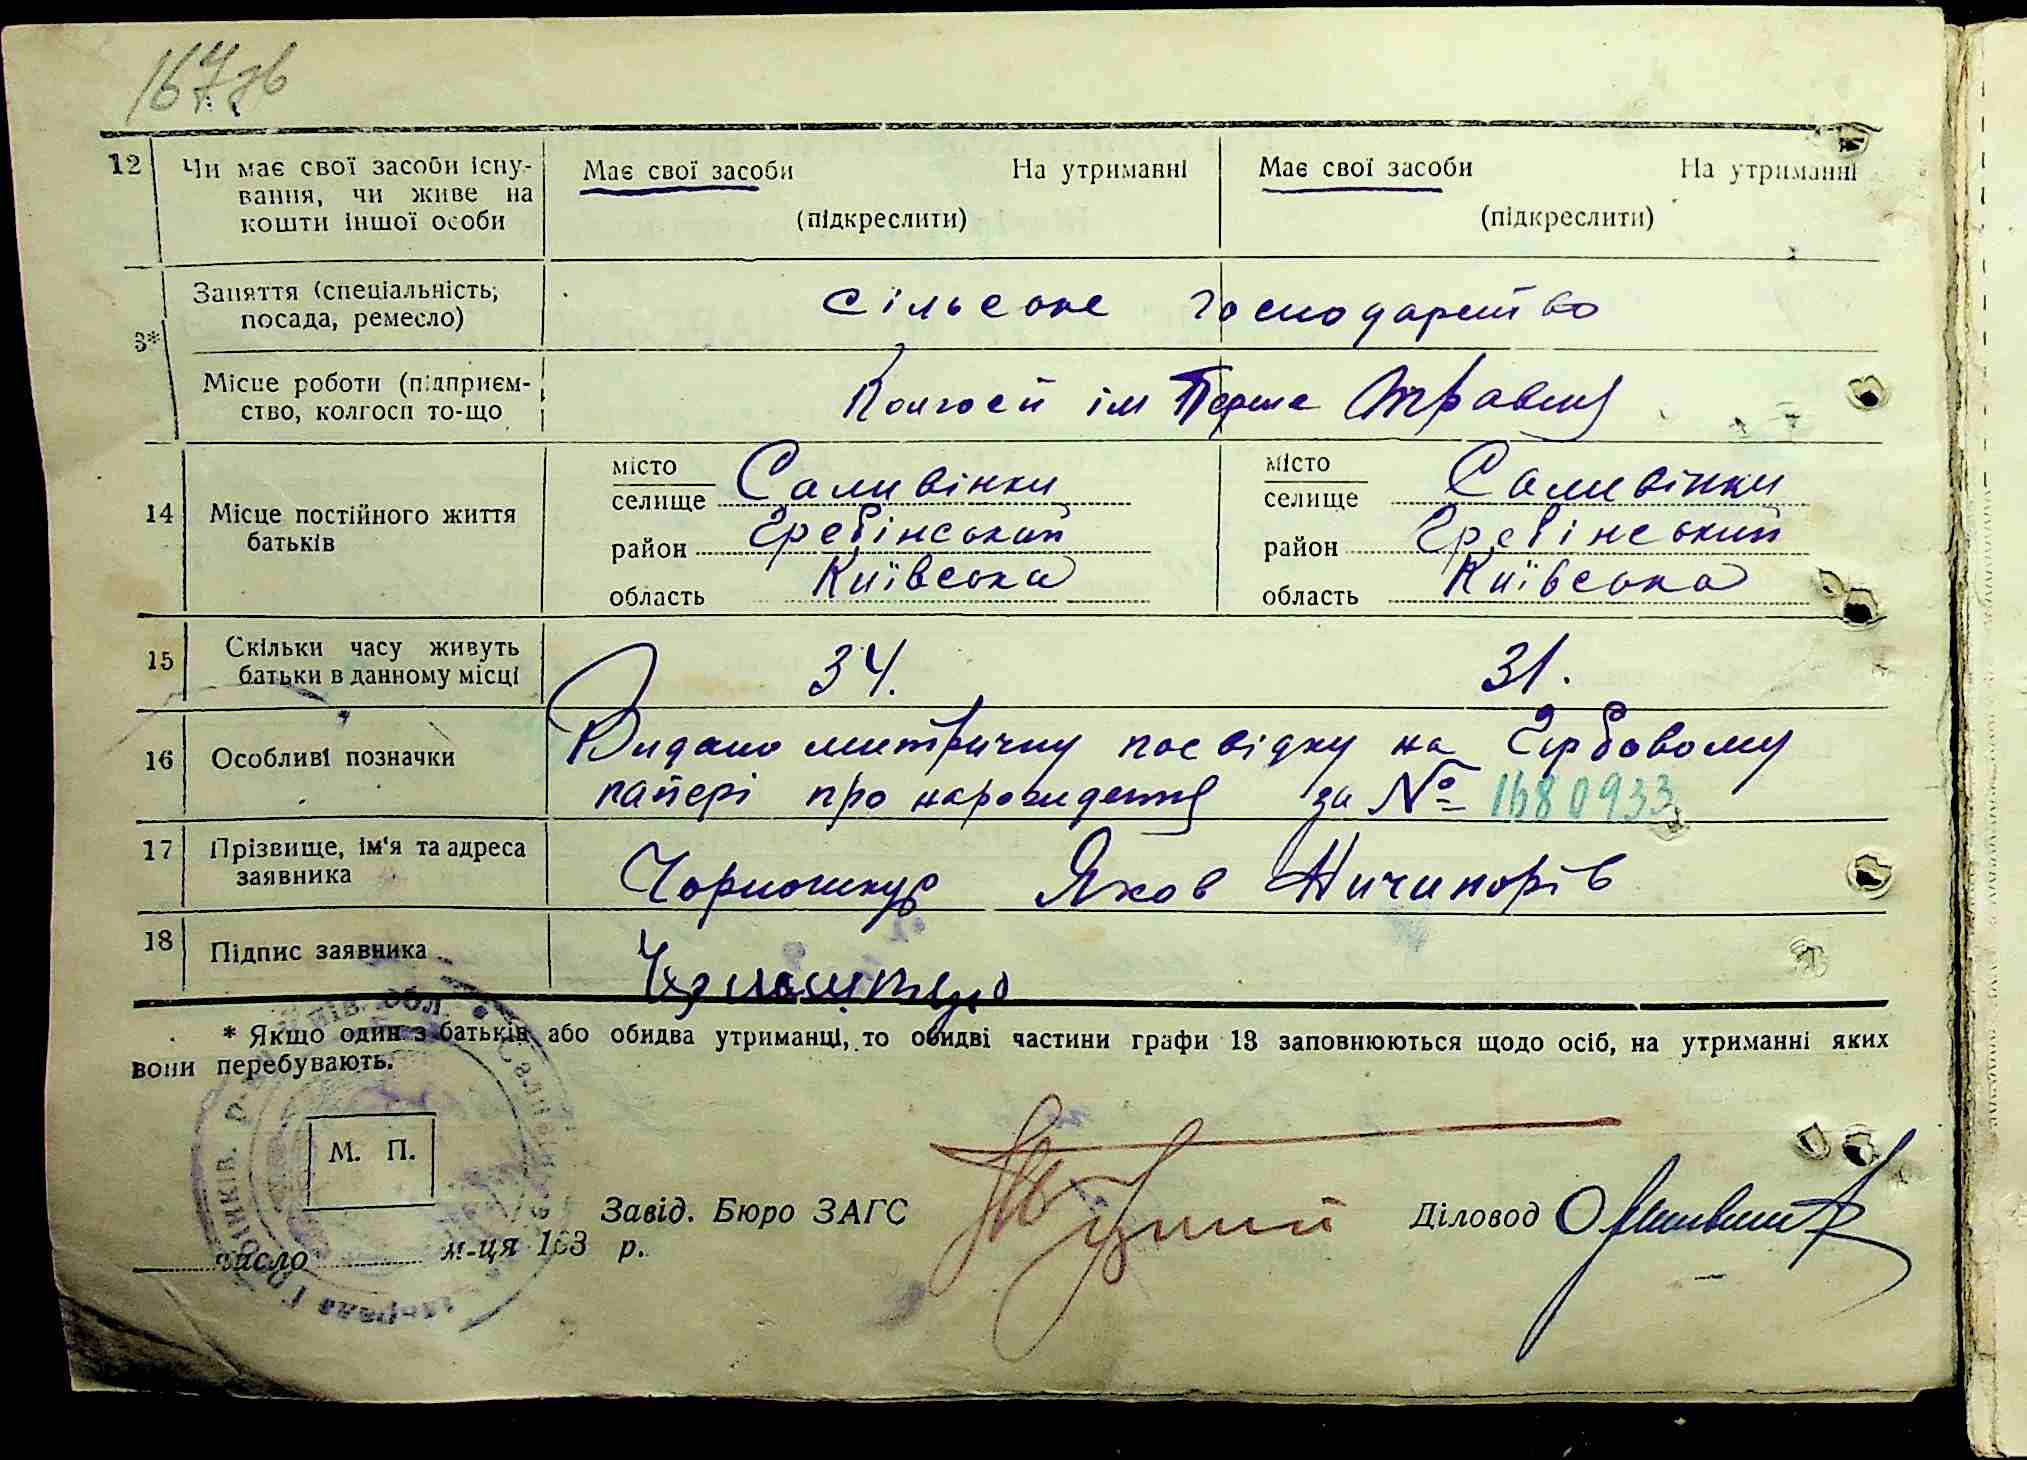 167зв
12 Чи має свої засоби існу-
вання, чи живе на
кошти іншої особи
Має свої засоби На утриманні
(підкреслити)
Має свої засоби На утриманні
(підкреслити)
3*
Заняття (спеціальність,
посада, ремесло)
сільске господарство
Місце роботи (підприєм-
ство, колгосп то-що
Колгосп ім Перше Травня
14 Місце постійного життя
батьків
місто
селище Саливінки
район Гребінський
область Київська
місто
селище Саливінки
район Гребінський
область Київська
15 Скільки часу живуть
батьки в данному місці
34. 31.
16 Особливі позначки
Видано митричну посвідку на Гербовому
папері про народидення за № 1680933
17 Прізвище, ім'я та адреса
заявника
Чорношкур Яков Ничипорів
18 Підпис заявника
* Якщо один з батьків або обидва утриманці, то обидві частини графи 13 заповнюються щодо осіб, на утриманні яких
вони перебувають.
М. П.
Завід. Бюро ЗАГС
Діловод
число м-ця 193 р.